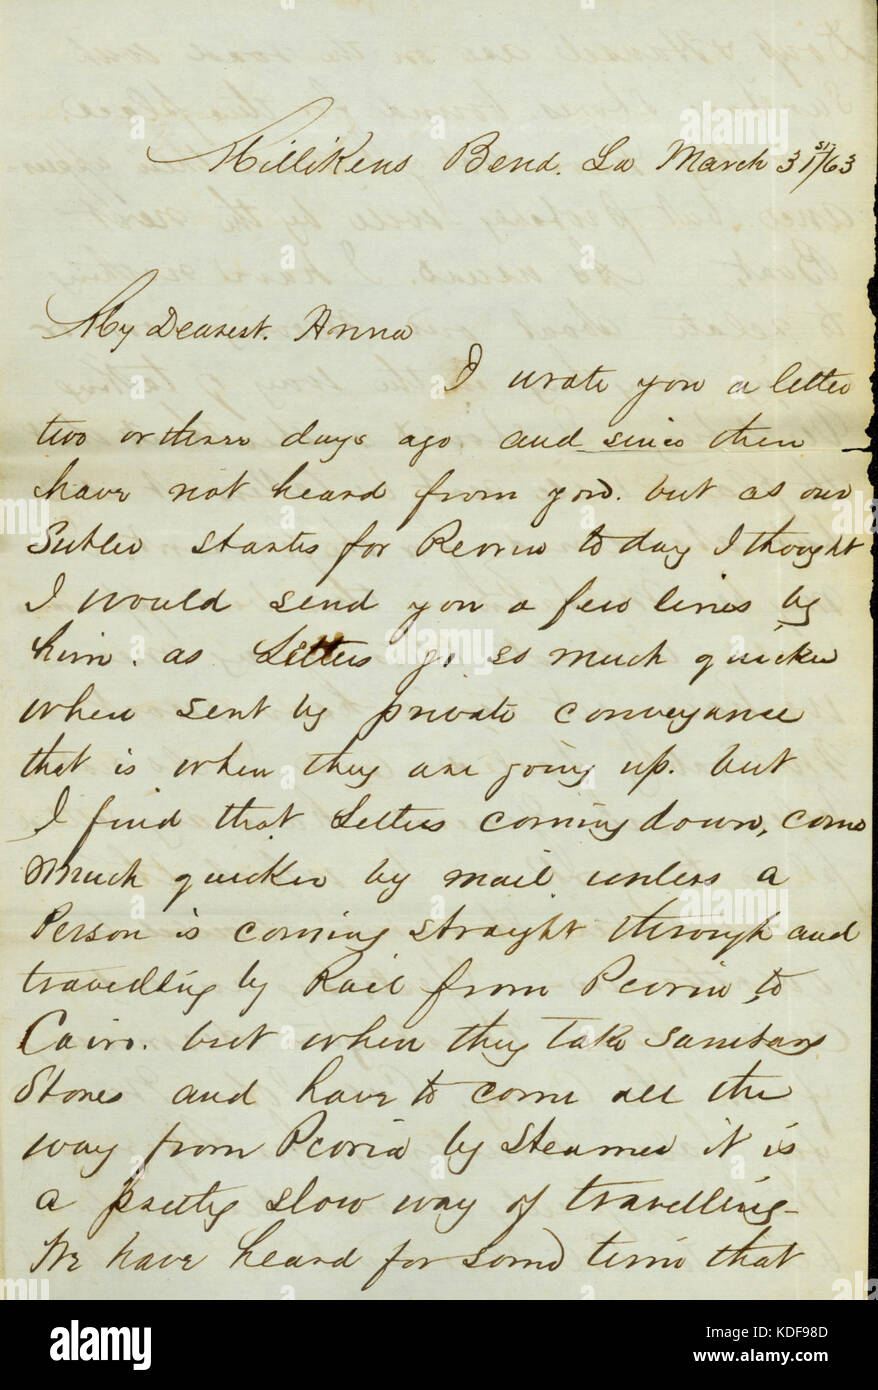 Millikens Bend. La March 31st/63
My Dearest. Anna
I wrote you a letter
two or three days ago. and since then
have not heard from you. but as our
Sutler starts for Peoria to day I thought
I would send you a few lines by
him. as Letters go so much quicker
when sent by private conveyance
that is when they are going up. but
I find that Letters coming down, come
Much quicker by mail unless a
Person is coming straight through and
travelling by Rail from Peoria to
Cairo. but when they take sanitary
Stores and have to come all the
way from Peoria by Steamer it is
a pretty slow way of travelling-
We have heard for some time that
alamy
Image ID: KDF98D
www.alamy.com